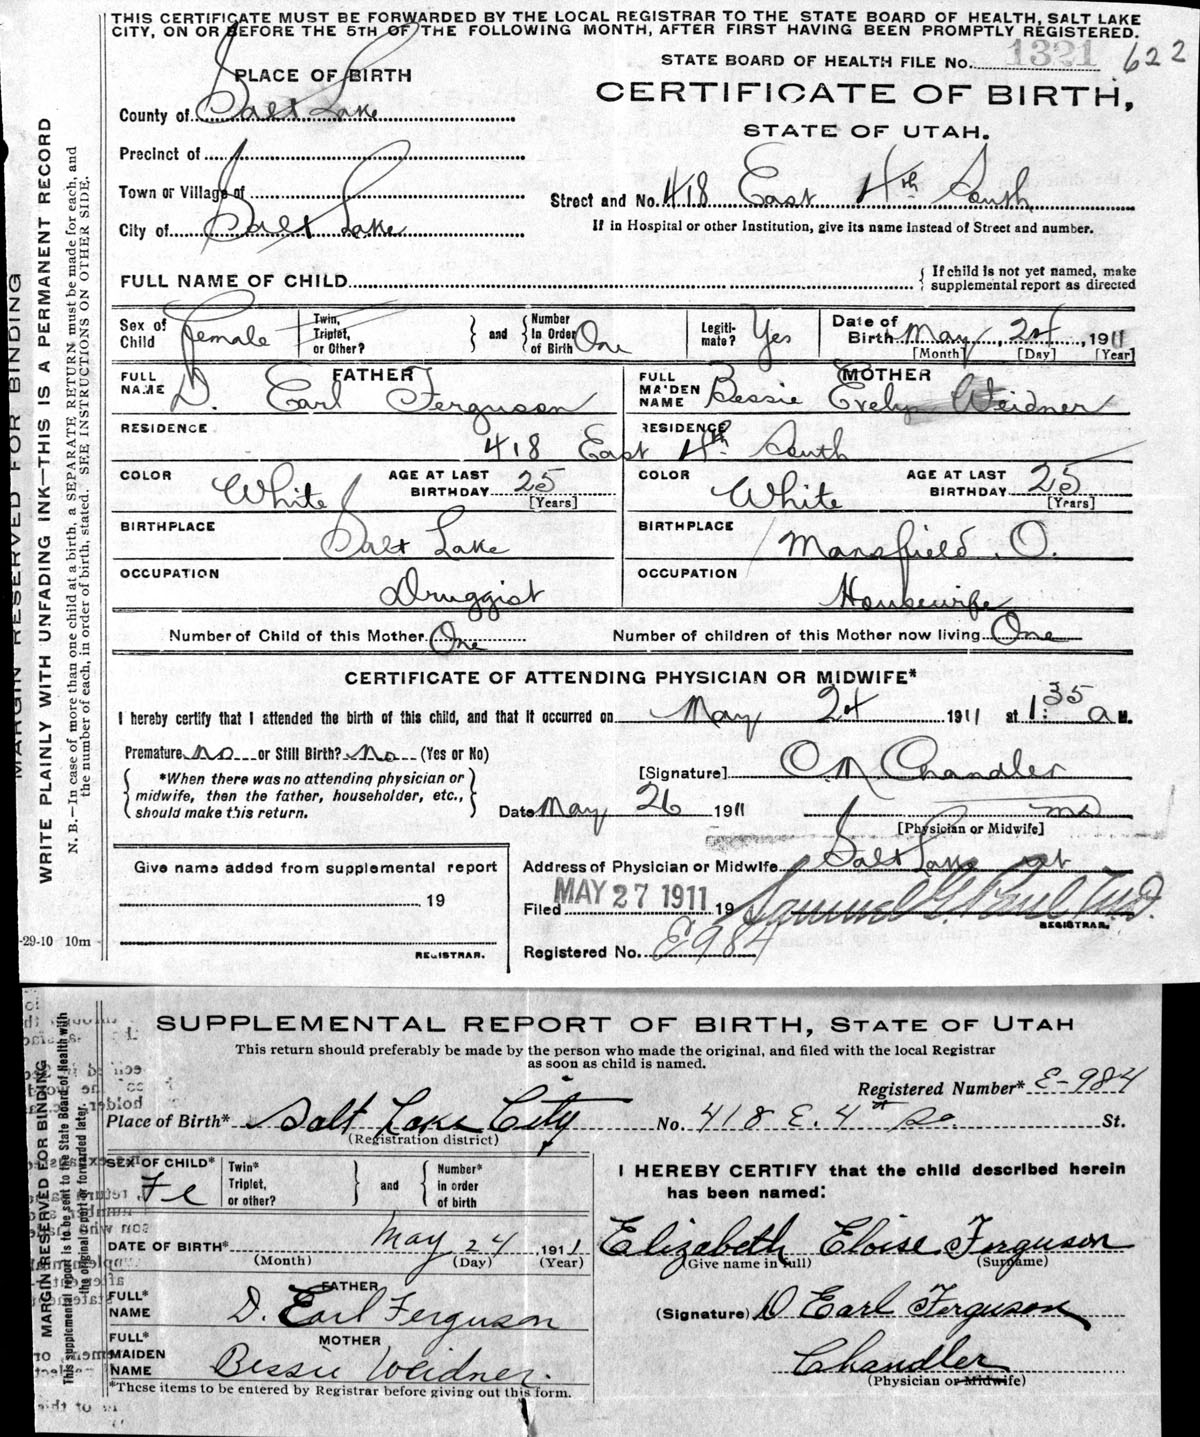 THIS CERTIFICATE MUST BE FORWARDED BY THE LOCAL REGISTRAR TO THE STATE BOARD OF HEALTH, SALT LAKE
CITY, ON OR BEFORE THE 5TH OF THE FOLLOWING MONTH, AFTER FIRST HAVING BEEN PROMPTLY REGISTERED.
STATE BOARD OF HEALTH FILE No. 1321 622
PLACE OF BIRTH
CERTIFICATE OF BIRTH,
STATE OF UTAH.
County of Salt Lake
Precinct of
Town or Village of
Street and No. 418 East 4th South
City of Salt Lake
If in Hospital or other Institution, give its name instead of Street and number.
FULL NAME OF CHILD
{ If child is not yet named, make
supplemental report as directed
Sex of Child Female
Twin, Triplet, or Other? } and { Number in Order of Birth One
Legiti-mate? Yes
Date of Birth May, 24, 1911
[Month] [Day] [Year]
FATHER
FULL NAME D. Earl Ferguson
MOTHER
FULL MAIDEN NAME Bessie Evelyn Weidner
RESIDENCE RESIDENCE
418 East 4th South
COLOR White AGE AT LAST BIRTHDAY 25 [Years]
COLOR White AGE AT LAST BIRTHDAY 25 [Years]
BIRTHPLACE Salt Lake
BIRTHPLACE Mansfield. O.
OCCUPATION Druggist
OCCUPATION Housewife
Number of Child of this Mother One Number of children of this Mother now living One
CERTIFICATE OF ATTENDING PHYSICIAN OR MIDWIFE*
I hereby certify that I attended the birth of this child, and that it occurred on May 24 1911 at 1:35 a M.
Premature no or Still Birth? No (Yes or No)
{ *When there was no attending physician or
midwife, then the father, householder, etc.,
should make this return. }
[Signature] C M Chandler
Date May 26 1911 MD
[Physician or Midwife]
Give name added from supplemental report
19
REGISTRAR.
Address of Physician or Midwife Salt Lake
Filed MAY 27 1911 19 Samuel G. Paul M.D.
REGISTRAR.
Registered No. E984
-29-10 10m
MARGIN RESERVED FOR BINDING
WRITE PLAINLY WITH UNFADING INK—THIS IS A PERMANENT RECORD
N. B.—In case of more than one child at a birth, a SEPARATE RETURN must be made for each, and
the number of each, in order of birth, stated. SEE INSTRUCTIONS ON OTHER SIDE.
SUPPLEMENTAL REPORT OF BIRTH, STATE OF UTAH
This return should preferably be made by the person who made the original, and filed with the local Registrar
as soon as child is named.
Registered Number* E-984
Place of Birth* Salt Lake City No. 418 E. 4th So. St.
(Registration district)
SEX OF CHILD* Fe
Twin* Triplet, or other? } and { Number* in order of birth
I HEREBY CERTIFY that the child described herein
has been named:
DATE OF BIRTH* May 24 1911
(Month) (Day) (Year)
Elizabeth Eloise Ferguson
(Give name in full) (Surname)
FATHER
FULL* NAME D. Earl Ferguson
(Signature) D Earl Ferguson
MOTHER
FULL* MAIDEN NAME Bessie Weidner.
Chandler
(Physician or Midwife)
*These items to be entered by Registrar before giving out this form.
MARGIN RESERVED FOR BINDING
This supplemental report is to be sent to the State Board of Health with
the original report or forwarded later.